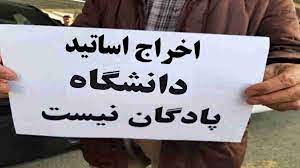 اخراج اساتید
دانشگاه
پادگان نیست